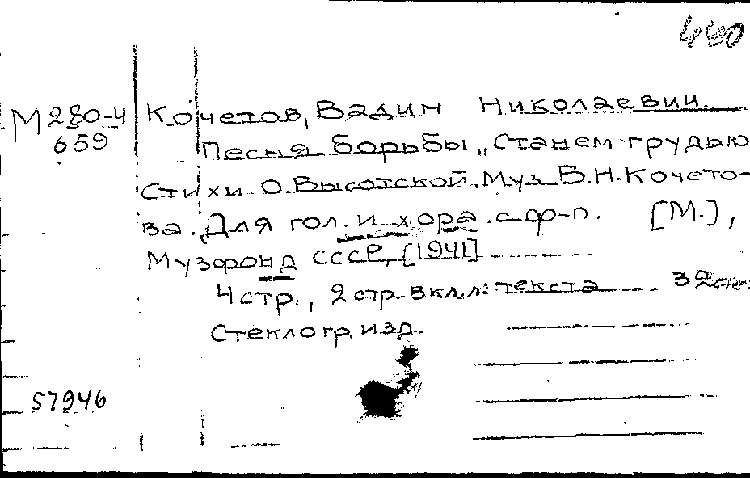 460
М 280-4 Кочетов, Вадим Николаевич.
659
Песня борьбы „Станем грудью
Стихи О. Высотской. Муз. В.Н. Кочето-
ва. Для гол. и хора с ф-п. [М.],
Музфонд СССР, [1941]
4 стр., 2 стр. вкл. л. текста 32 см.
Стеклогр. изд.
57946